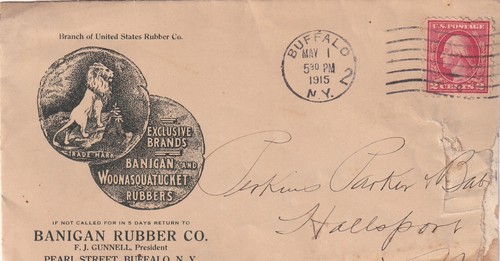 Branch of United States Rubber Co.
TRADE MARK
EXCLUSIVE
BRANDS
BANIGAN AND
WOONASQUATUCKET
RUBBERS
IF NOT CALLED FOR IN 5 DAYS RETURN TO
BANIGAN RUBBER CO.
F. J. GUNNELL, President
PEARL STREET, BUFFALO, N. Y.
BUFFALO
MAY 1
5 30 PM
1915
N.Y.
2
U.S. POSTAGE
2 CENTS 2
Perkins Parker & Bab
Hallsport